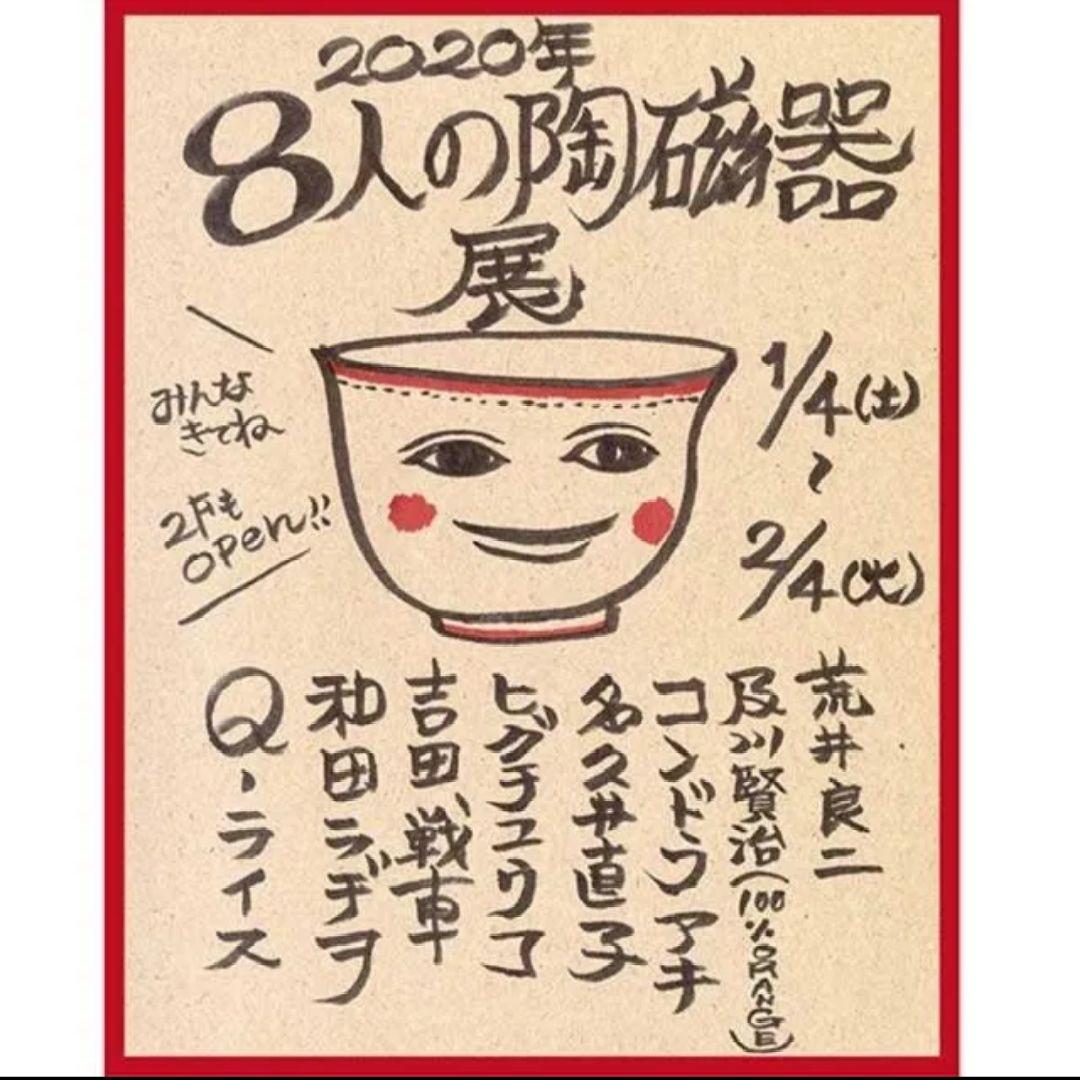 2020年
8人の陶磁器
展
みんな
きてね
2Fも
open!!
1/4(土)
〜
2/4(火)
荒井良二
及川賢治(100%ORANGE)
コンドウアキ
名久井直子
ヒグチユウコ
吉田戦車
和田ラヂヲ
Q・ライス